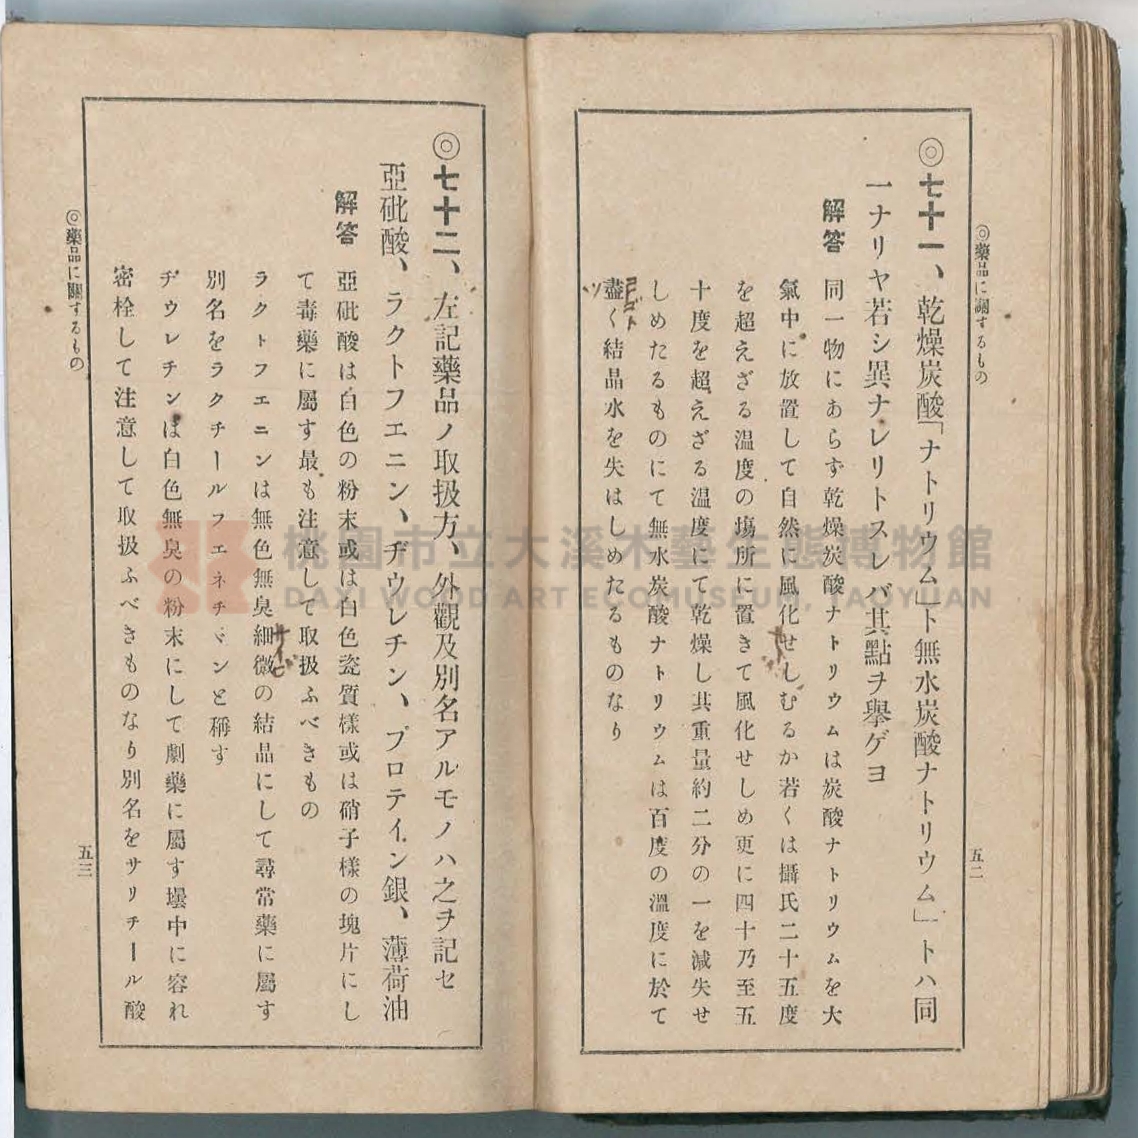 ◎藥品に關するもの
五二
◎七十一、乾燥炭酸「ナトリウム」ト無水炭酸ナトリウム」ートハ同
一ナリヤ若シ異ナレリトスレバ其點ヲ擧ゲヨ
解答 同一物にあらず乾燥炭酸ナトリウムは炭酸ナトリウムを大
氣中に放置して自然に風化せしむるか若くは攝氏二十五度
を超えざる溫度の塲所に置きて風化せしめ更に四十乃至五
十度を超えざる溫度にて乾燥し其重量約二分の一を減失せ
しめたるものにて無水炭酸ナトリウムは百度の溫度に於て
盡く結晶水を失はしめたるものなり
コトゴト
◎七十二、左記藥品ノ取扱方、外觀及別名アルモノハ之ヲ記セ
亞砒酸、ラクトフエニン、ヂウレチン、プロテイン銀、薄荷油
解答 亞砒酸は白色の粉末或は白色瓷質樣或は硝子樣の塊片にし
て毒藥に屬す最も注意して取扱ふべきもの
ラクトフエニンは無色無臭細微の結晶にして尋常藥に屬す
別名をラクチールフエネチヾンと稱す
ヂウレチンは白色無臭の粉末にして劇藥に屬す壜中に容れ
密栓して注意して取扱ふべきものなり別名をサリチール酸
◎藥品に關するもの
五三
桃園市立大溪木藝生態博物館
DAXI WOOD ART ECOMUSEUM, TAOYUAN